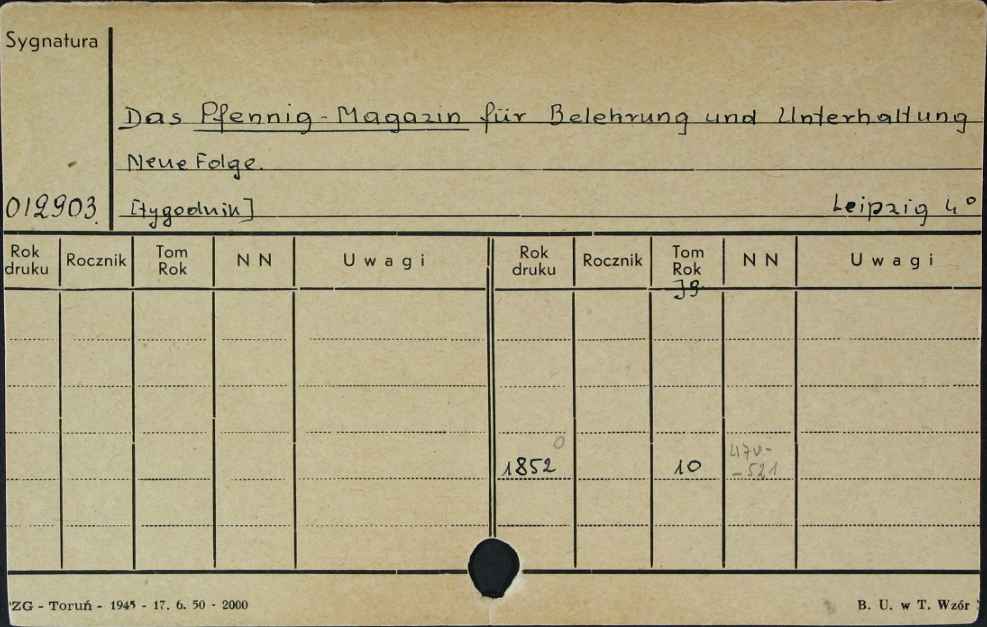 Sygnatura
Das Pfennig-Magazin für Belehrung und Unterhaltung
Neue Folge.
012903. [tygodnik] Leipzig 4°
Rok druku Rocznik Tom Rok N N Uwagi Rok druku Rocznik Tom Rok N N Uwagi
Jg
0
470-
1852 10 -521
ZG - Toruń - 1945 - 17. 6. 50 - 2000 B. U. w T. Wzór